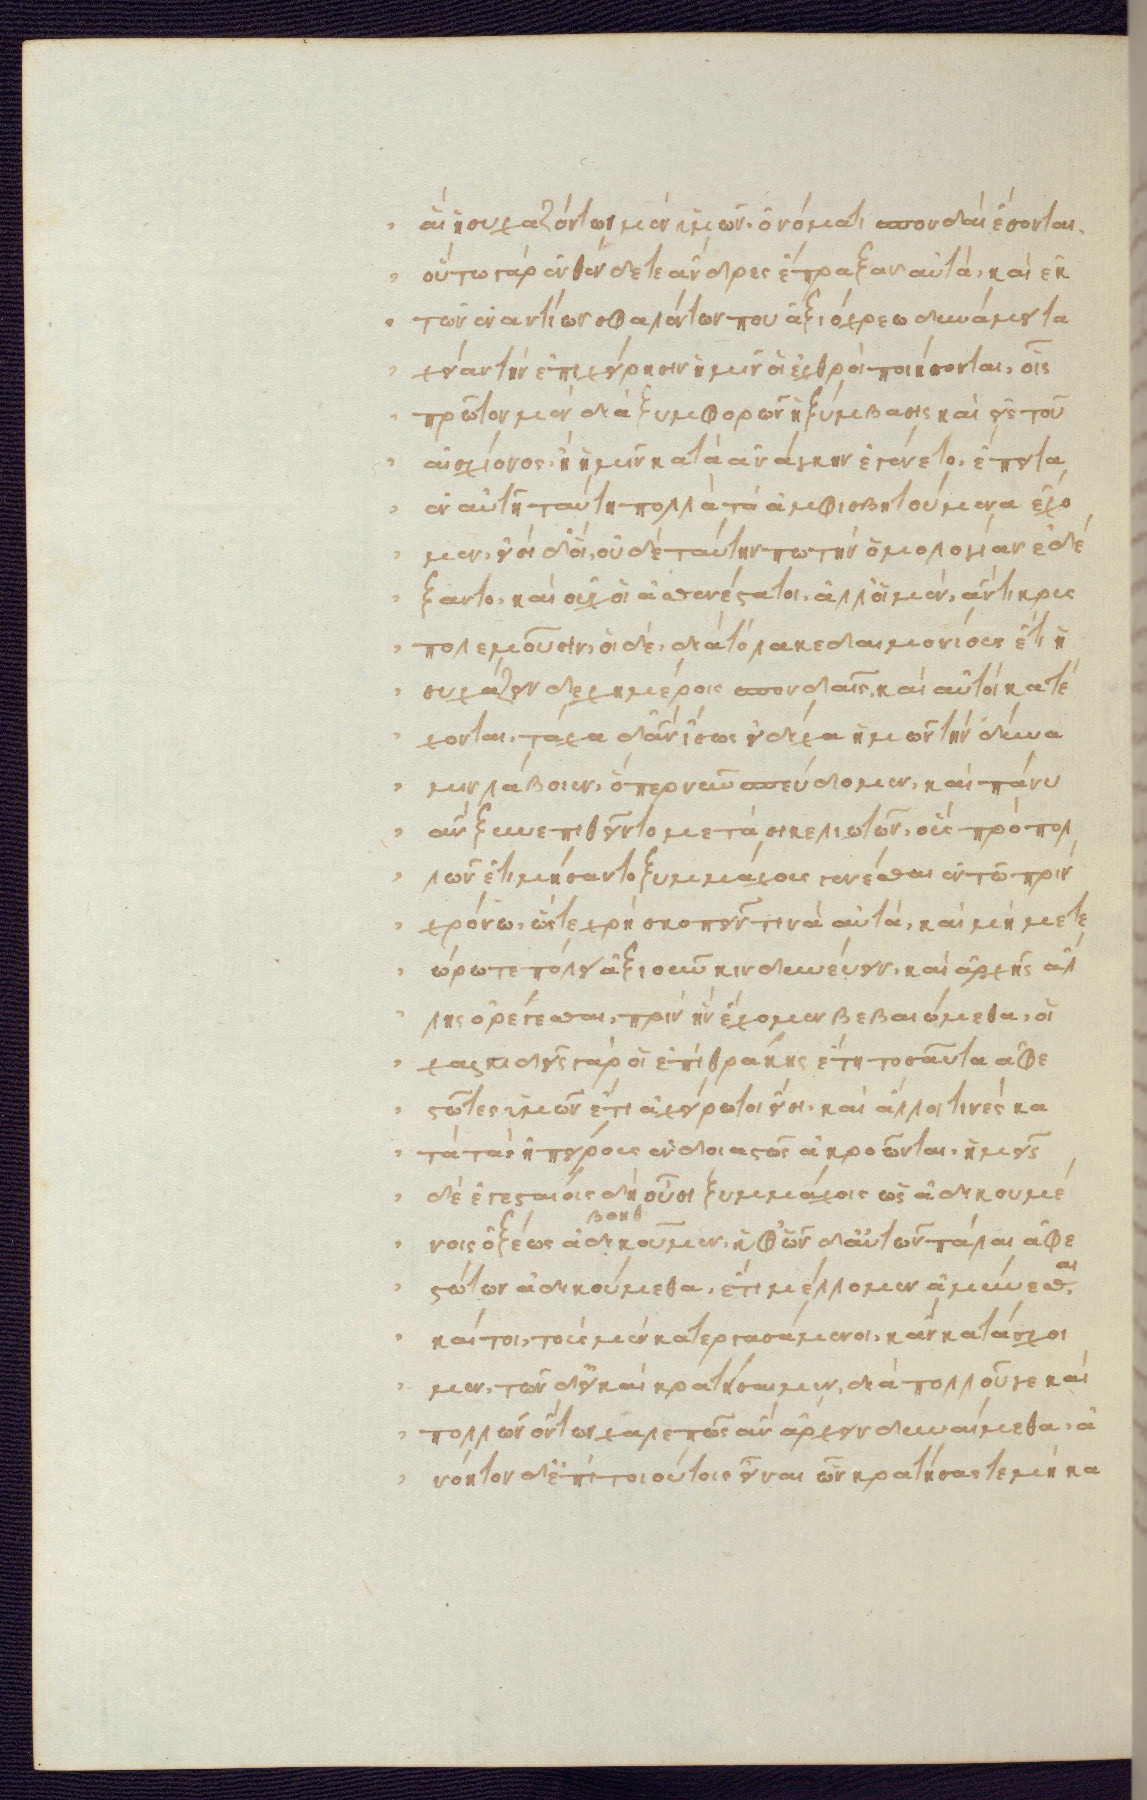 αἳ ἡσυχαζόντων μὲν ὑμῶν, ὀνόματι σπονδαὶ ἔσονται.
οὕτω γὰρ ἐνθένδε τε ἄνδρες ἔπραξαν αὐτά, καὶ ἐκ
τῶν ἐναντίων σφαλέντων που ἀξιόχρεω δυνάμει τα
χεῖαν τὴν ἐπιχείρησιν ἡμῖν οἱ ἐχθροὶ ποιήσονται, οἷς
πρῶτον μὲν διὰ ξυμφορῶν ἡ ξύμβασις καὶ ἐκ τοῦ
αἰσχίονος, ἢ ἡμῖν κατὰ ἀνάγκην ἐγένετο, ἔπειτα
ἐν αὐτῇ ταύτῃ πολλὰ τὰ ἀμφισβητούμενα ἔχο
μεν, εἰσὶ δ' οἳ, οὐδὲ ταύτην πω τὴν ὁμολογίαν ἐδέ
ξαντο, καὶ οὐχ οἱ ἀσθενέστατοι, ἀλλ' οἱ μὲν, ἄντικρυς
πολεμοῦσιν, οἱ δὲ, διὰ τὸ λακεδαιμονίους ἔτι ἡ
συχάζειν δεχημέροις σπονδαῖς, καὶ αὐτοὶ κατέ
χονται, τάχα δ' ἂν ἴσως εἰ δίχα ἡμῶν τὴν δύνα
μιν λάβοιεν, ὅπερ νῦν σπεύδομεν, καὶ πάνυ
ἂν ξυνεπιθεῖντο μετὰ σικελιωτῶν, οὓς πρὸ πολ
λῶν ἐτιμήσαντο ξυμμάχους γενέσθαι ἐν τῷ πρὶν
χρόνῳ, ὥστε χρὴ σκοπεῖν τινὰ αὐτά, καὶ μὴ μετε
ώρῳ τε πόλει ἀξιοῦν κινδυνεύειν, καὶ ἀρχῆς ἄλ
λης ὀρέγεσθαι, πρὶν ἣν ἔχομεν βεβαιώμεθα, οἱ
χαλκιδεῖς γὰρ οἱ ἐπὶ θράκης ἔτη τοσαῦτα ἀφε
στῶτες ὑμῶν ἔτι ἀχείρωτοι εἰσι, καὶ ἄλλοι τινὲς κα
τὰ τὰς ἠπείρους ἐνδοιαστῶς ἀκροῶνται, ἡμεῖς
δὲ ἐγεσταίοις δὴ οὖσι ξυμμάχοις ὡς ἀδικουμέ
βοηθ
νοις ὀξέως ἀδικοῦμεν, ὑφ' ὧν δ' αὐτῶν πάλαι ἀφε
στώτων ἀδικούμεθα, ἔτι μέλλομεν ἀμύνεσθαι,
καίτοι, τοὺς μὲν κατεργασάμενοι, κἂν κατάσχοι
μεν, τῶν δ' εἰ καὶ κρατήσαιμεν, διὰ πολλοῦ γε καὶ
πολλῶν ὄντων χαλεπῶς ἂν ἄρχειν δυναίμεθα, ἀ
νόητον δ' ἐπὶ τοιούτους ἰέναι ὧν κρατήσας τε μὴ κα